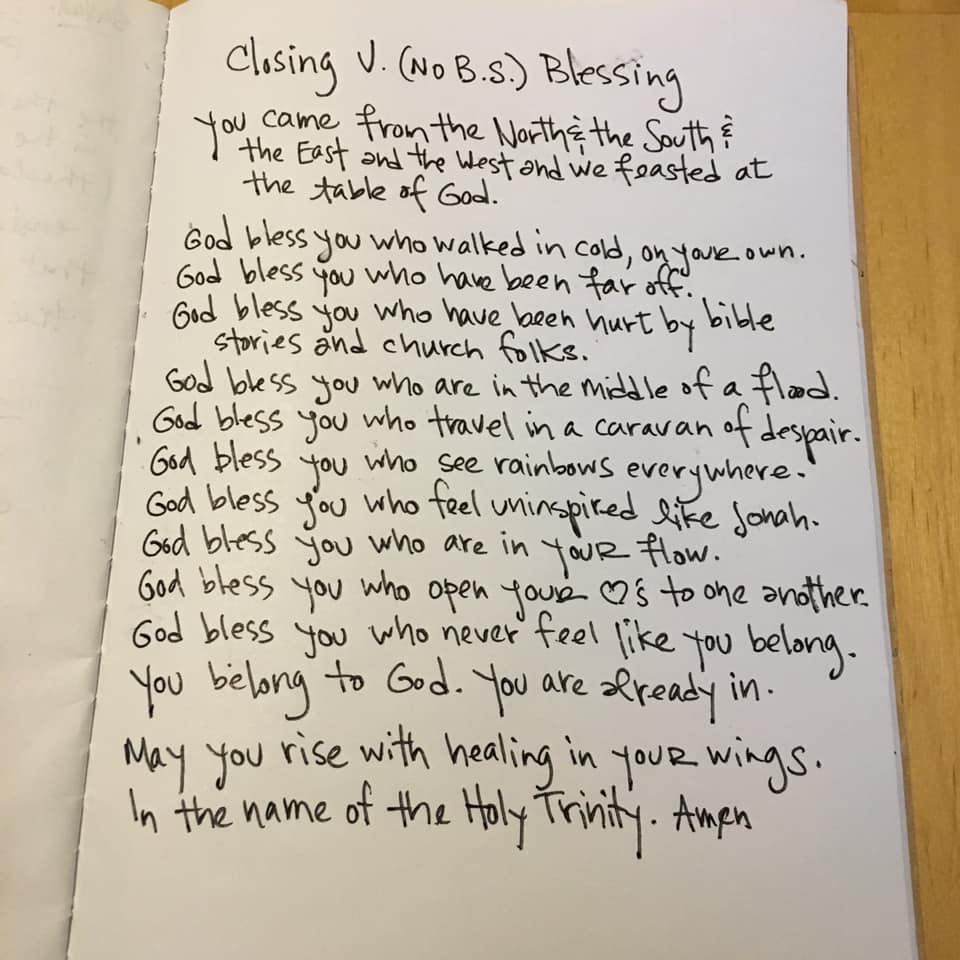 Closing V. (No B.S.) Blessing
You came from the North & the South &
the East and the West and we feasted at
the table of God.
God bless you who walked in cold, on your own.
God bless you who have been far off.
God bless you who have been hurt by bible
stories and church folks.
God bless you who are in the middle of a flood.
God bless you who travel in a caravan of despair.
God bless you who see rainbows everywhere.
God bless you who feel uninspired like Jonah.
God bless you who are in your flow.
God bless you who open your ♡'s to one another.
God bless you who never feel like you belong.
You belong to God. You are already in.
May you rise with healing in your wings.
In the name of the Holy Trinity. Amen